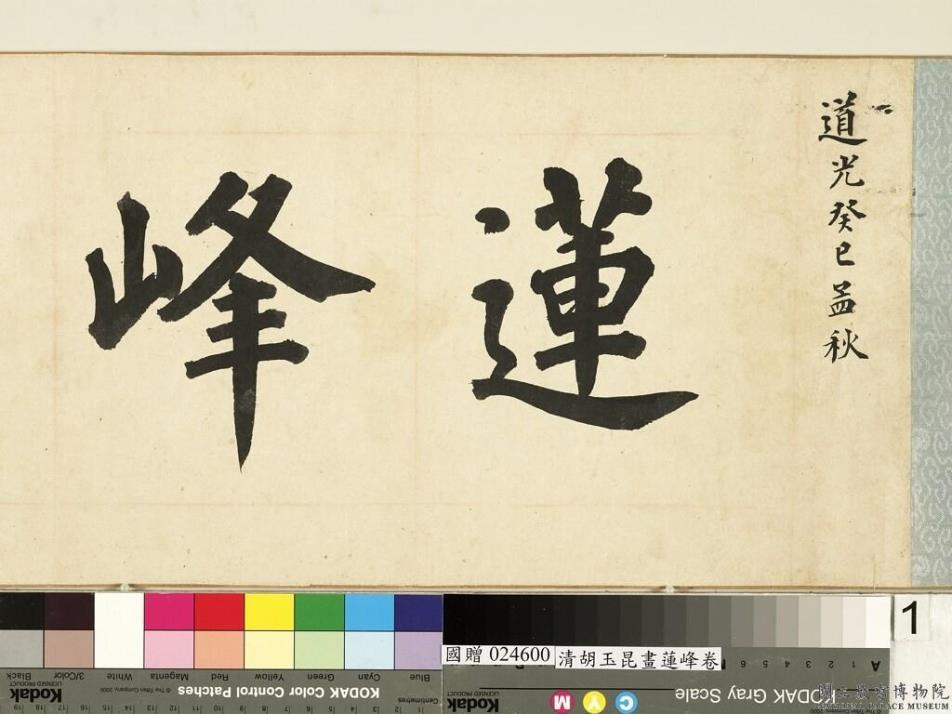 道光癸巳孟秋
蓮峰
1
國贈 024600
清胡玉昆畫蓮峰卷
KODAK Color Control Patches
© The Tiffen Company, 2000
Kodak
LICENSED PRODUCT
Blue
Cyan
Green
Yellow
Red
Magenta
White
3/Color
Black
Centimetres
KODAK Gray Scale
Kodak
LICENSED PRODUCT
C
Y
M
A 1 2 3 4 5 6
國立故宮博物院
NATIONAL PALACE MUSEUM